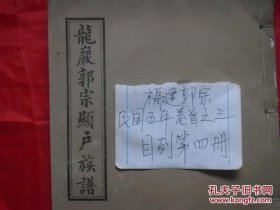 龍巖郭宗顯戶族譜
福建郭宗
民国五年卷首之三
目列第四册